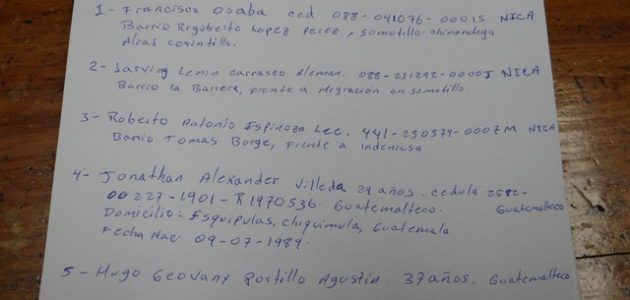 1 - Francisco Osaba ced. 088-041076-0001S NICA
Barrio Rigoberto Lopez Perez, Somotillo. chinandega
Alias
2 - Larving Lenin Carrasco Aleman. 088-231292-0000J NICA
Barrio la Banera, frente a Migración en somotillo.
3 - Roberto Antonio Espinoza Lee. 441-250574-0007M NICA
Barrio Tomas Borge, frente a
4 - Jonathan Alexander Villeda 29 años. cedula 2582-
00227-1901-R1970536. Guatemalteco. Guatemalteco
Domicilio - Esquipulas, Chiquimula, Guatemala
Fecha Nac. 09-07-1984.
5 - Hugo Geovany Portillo Agustin. 37 años. Guatemalteco